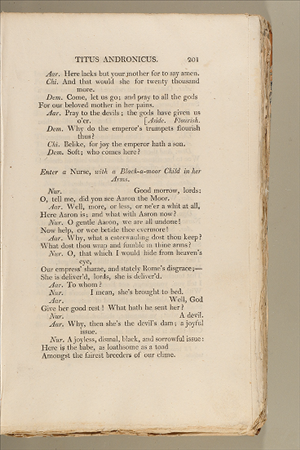 TITUS ANDRONICUS. 201
Aar. Here lacks but your mother for to say amen.
Chi. And that would she for twenty thousand
more.
Dem. Come, let us go; and pray to all the gods
For our beloved mother in her pains.
Aar. Pray to the devils; the gods have given us
o'er. [Aside. Flourish.
Dem. Why do the emperor's trumpets flourish
thus?
Chi. Belike, for joy the emperor hath a son.
Dem. Soft; who comes here?
Enter a Nurse, with a Black-a-moor Child in her
Arms.
Nur. Good morrow, lords:
O, tell me, did you see Aaron the Moor.
Aar. Well, more, or less, or ne'er a whit at all,
Here Aaron is; and what with Aaron now?
Nur. O gentle Aaron, we are all undone!
Now help, or woe betide thee evermore!
Aar. Why, what a caterwauling dost thou keep?
What dost thou wrap and fumble in thine arms?
Nur. O, that which I would hide from heaven's
eye,
Our empress' shame, and stately Rome's disgrace;—
She is deliver'd, lords, she is deliver'd.
Aar. To whom?
Nur. I mean, she's brought to bed.
Aar. Well, God
Give her good rest! What hath he sent her?
Nur. A devil.
Aar. Why, then she's the devil's dam; a joyful
issue.
Nur. A joyless, dismal, black, and sorrowful issue:
Here is the babe, as loathsome as a toad
Amongst the fairest breeders of our clime.